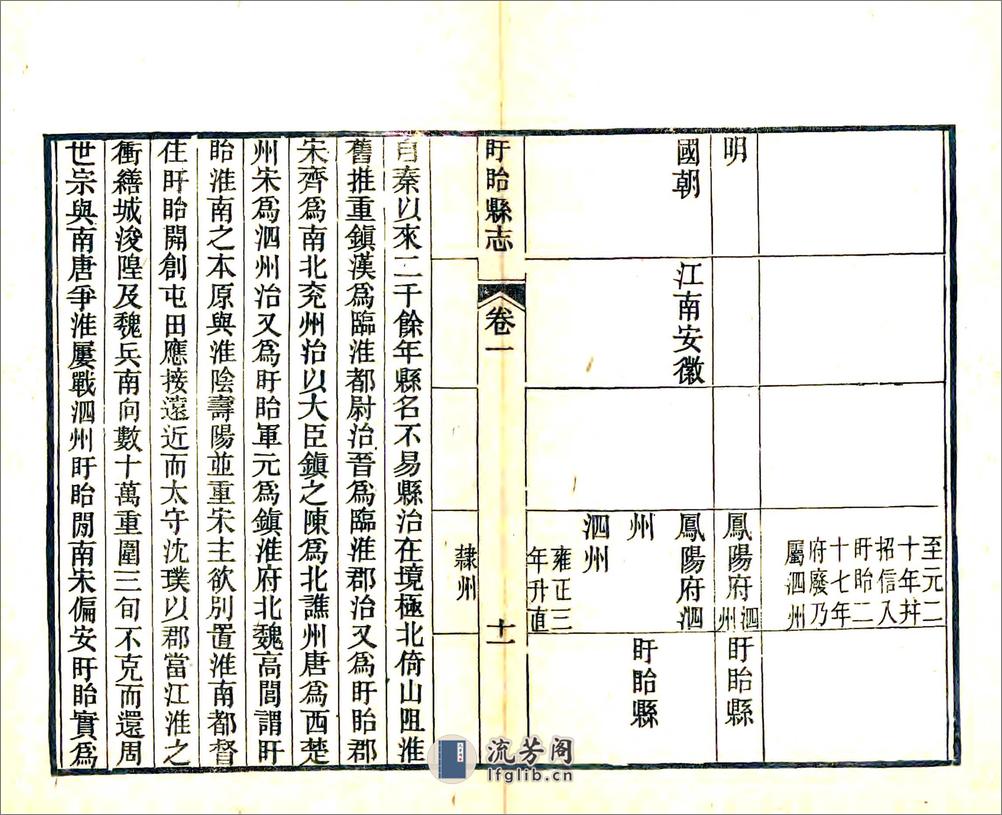 至元二
十年幷
招信入
盱眙二
十七年
府廢乃
屬泗州
明
鳳陽府泗
州
盱眙縣
國朝
江南安徽
鳳陽府泗
州
盱眙縣
泗州
雍正三
年升直
盱眙縣志
卷一
十一
隸州
自秦以來二千餘年縣名不易縣治在境極北倚山阻淮
舊推重鎮漢爲臨淮都尉治晉爲臨淮郡治又爲盱眙郡
宋齊爲南北兖州治以大臣鎮之陳爲北譙州唐爲西楚
州宋爲泗州治又爲盱眙軍元爲鎮淮府北魏高閭謂盱
眙淮南之本原與淮陰壽陽並重宋主欲別置淮南都督
住盱眙開創屯田應接遠近而太守沈璞以郡當江淮之
衝繕城浚隍及魏兵南向數十萬重圍三旬不克而還周
世宗與南唐爭淮屢戰泗州盱眙閒南宋偏安盱眙實爲
流芳阁
lfglib.cn